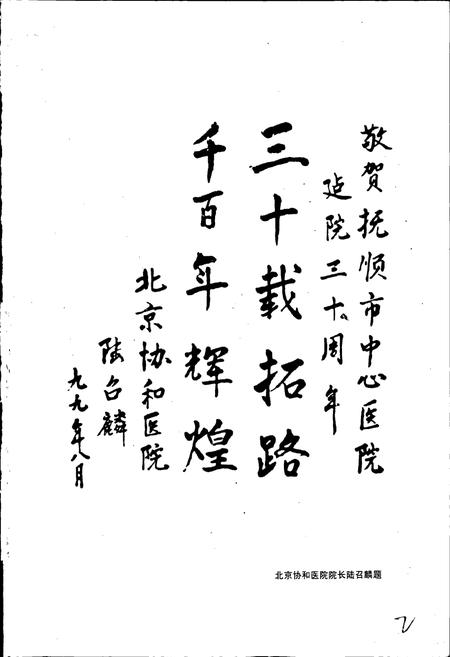 敬贺抚顺市中心医院
建院三十周年
三十载拓路
千百年辉煌
北京协和医院
陆召麟
九九年八月
北京协和医院院长陆召麟题
2